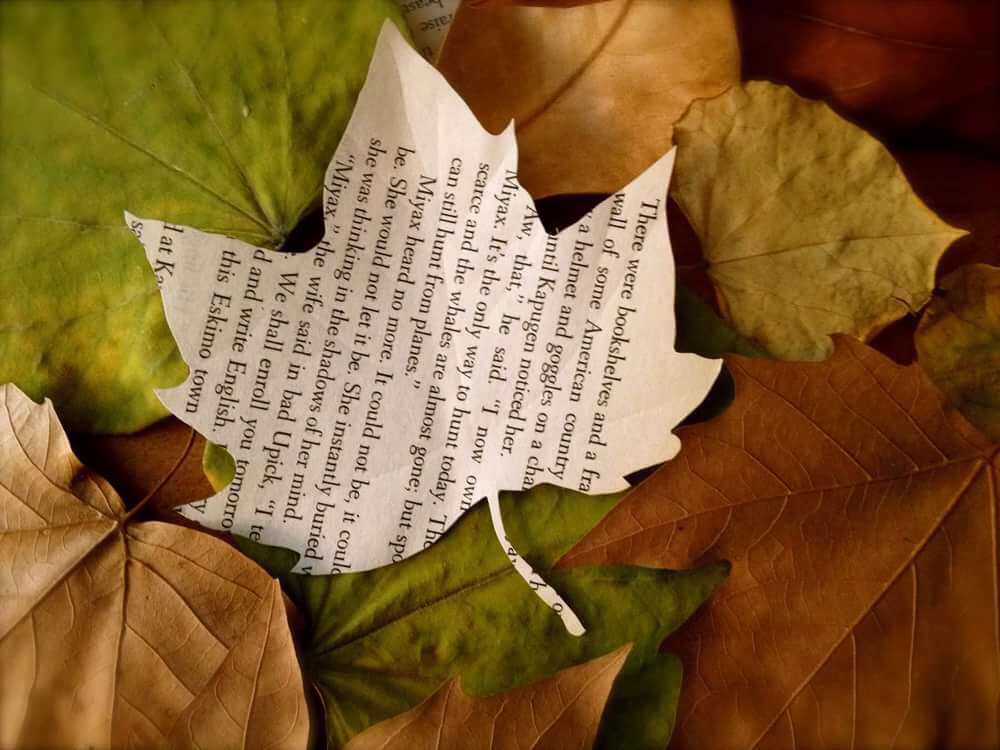 There were bookshelves and a fra
wall of some American country
, a helmet and goggles on a cha
until Kapugen noticed her.
Aw, that,” he said. “I now own
Miyax. It's the only way to hunt today. Th
scarce and the whales are almost gone; but spo
can still hunt from planes.”
Miyax heard no more. It could not be, it coul
be. She would not let it be. She instantly buried
she was thinking in the shadows of her mind.
“Miyax,” the wife said in bad Upick, “I te
. We shall enroll you tomorro
d and write English.
this Eskimo town
at Ka
raise